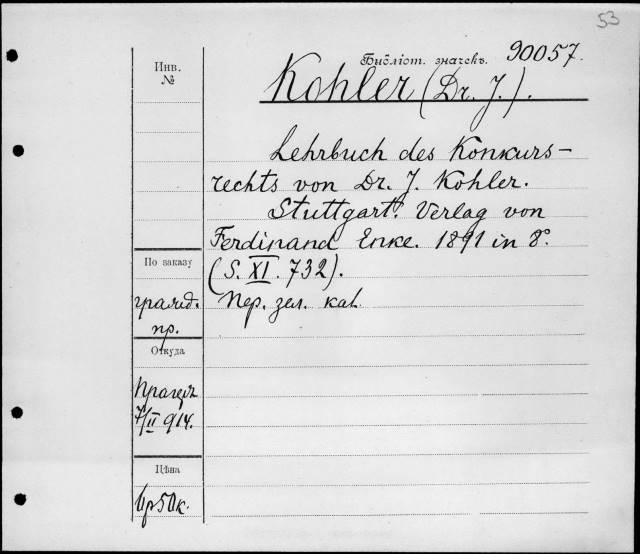 53
Библіот. значекъ. 90057.
Инв.
№
Kohler (Dr. J.).
Lehrbuch des Konkurs-
rechts von Dr. J. Kohler.
Stuttgart. Verlag von
Ferdinand Enke. 1891 in 8°.
(S. XI. 732).
По заказу
гражд.
пр.
Пер. зел. кал.
Откуда
Прагеръ
7/II 914.
Цѣна
6р50к.